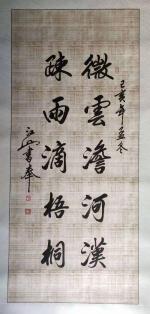 己亥年孟冬
微雲澹河漢
疎雨滴梧桐
書奉